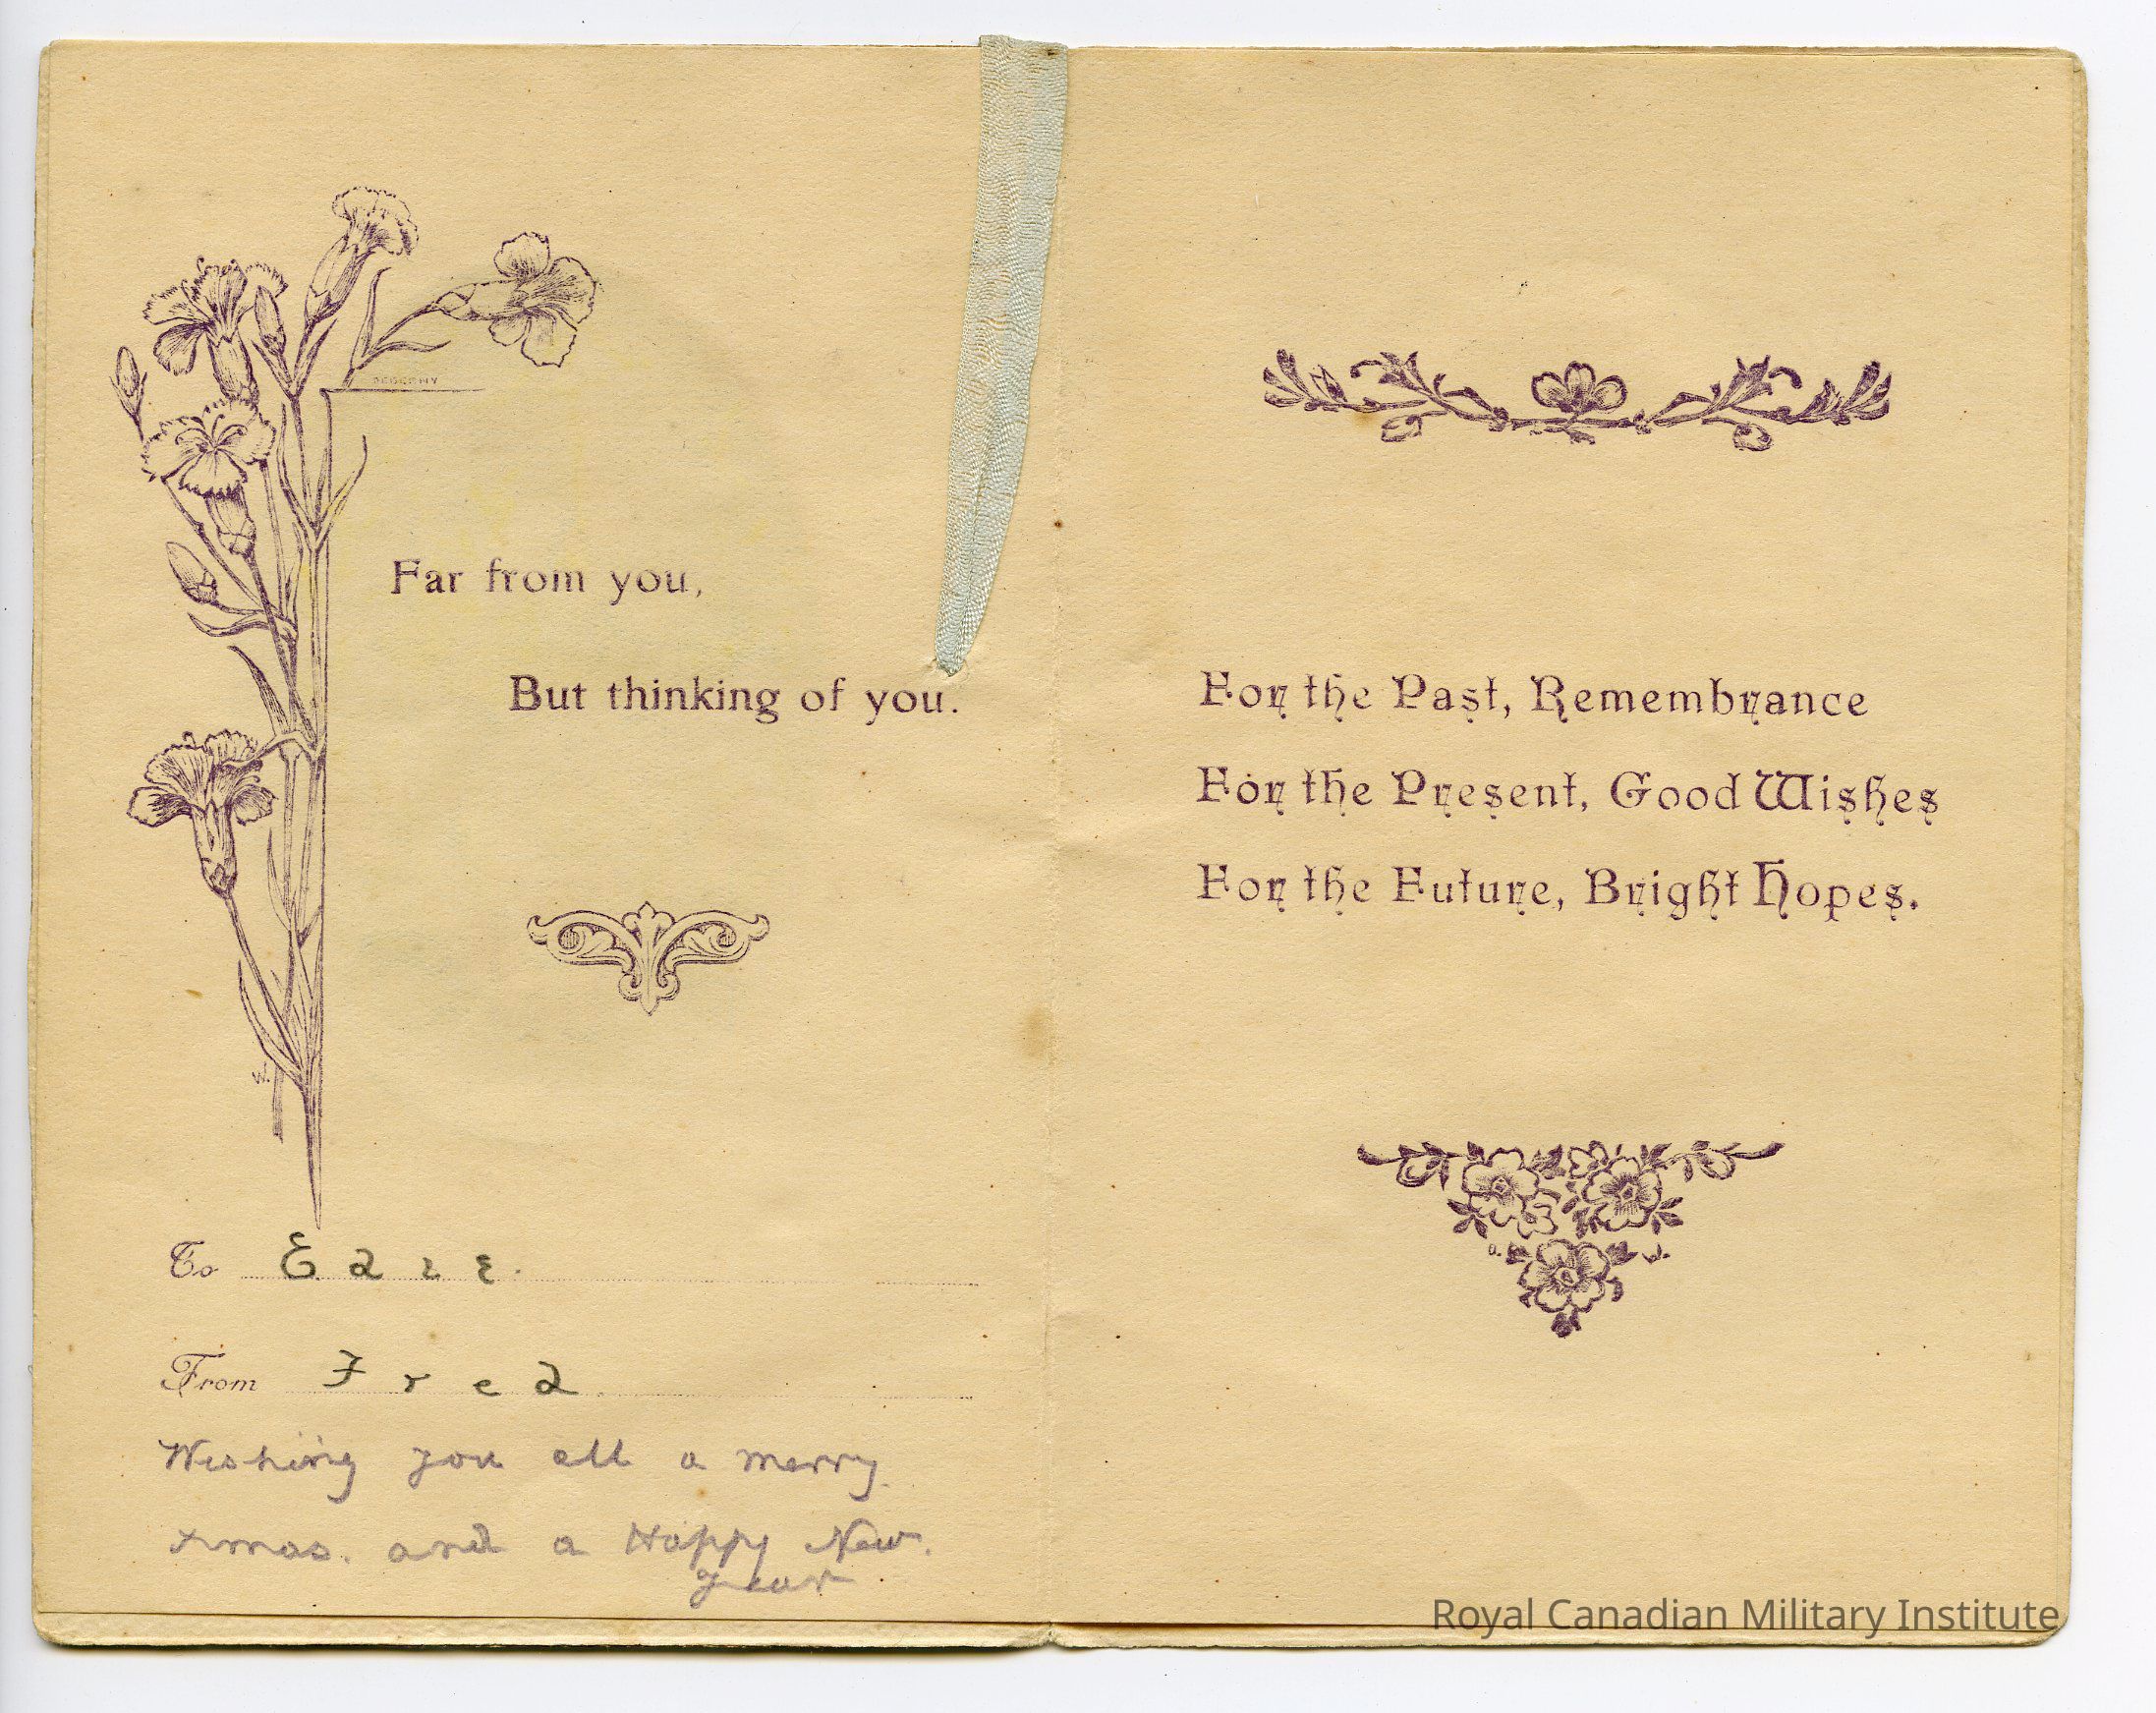 Far from you,
But thinking of you.
To
From Fred.
Wishing you all a merry
xmas. and a Happy New.
year
For the Past, Remembrance
For the Present, Good Wishes
For the Future, Bright Hopes.
Royal Canadian Military Institute